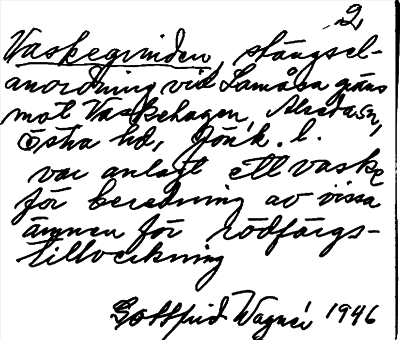 2,
Vaskegrinden, stängsel-
anordning vid Lamåsa gräns
mot Vaskehagen, Alseda sn,
Östra hd, Jönk. l.
var anlagt ett vaske
för beredning av vissa
ämnen för rödfärgs-
tillverkning
Gottfrid Wagnér 1946